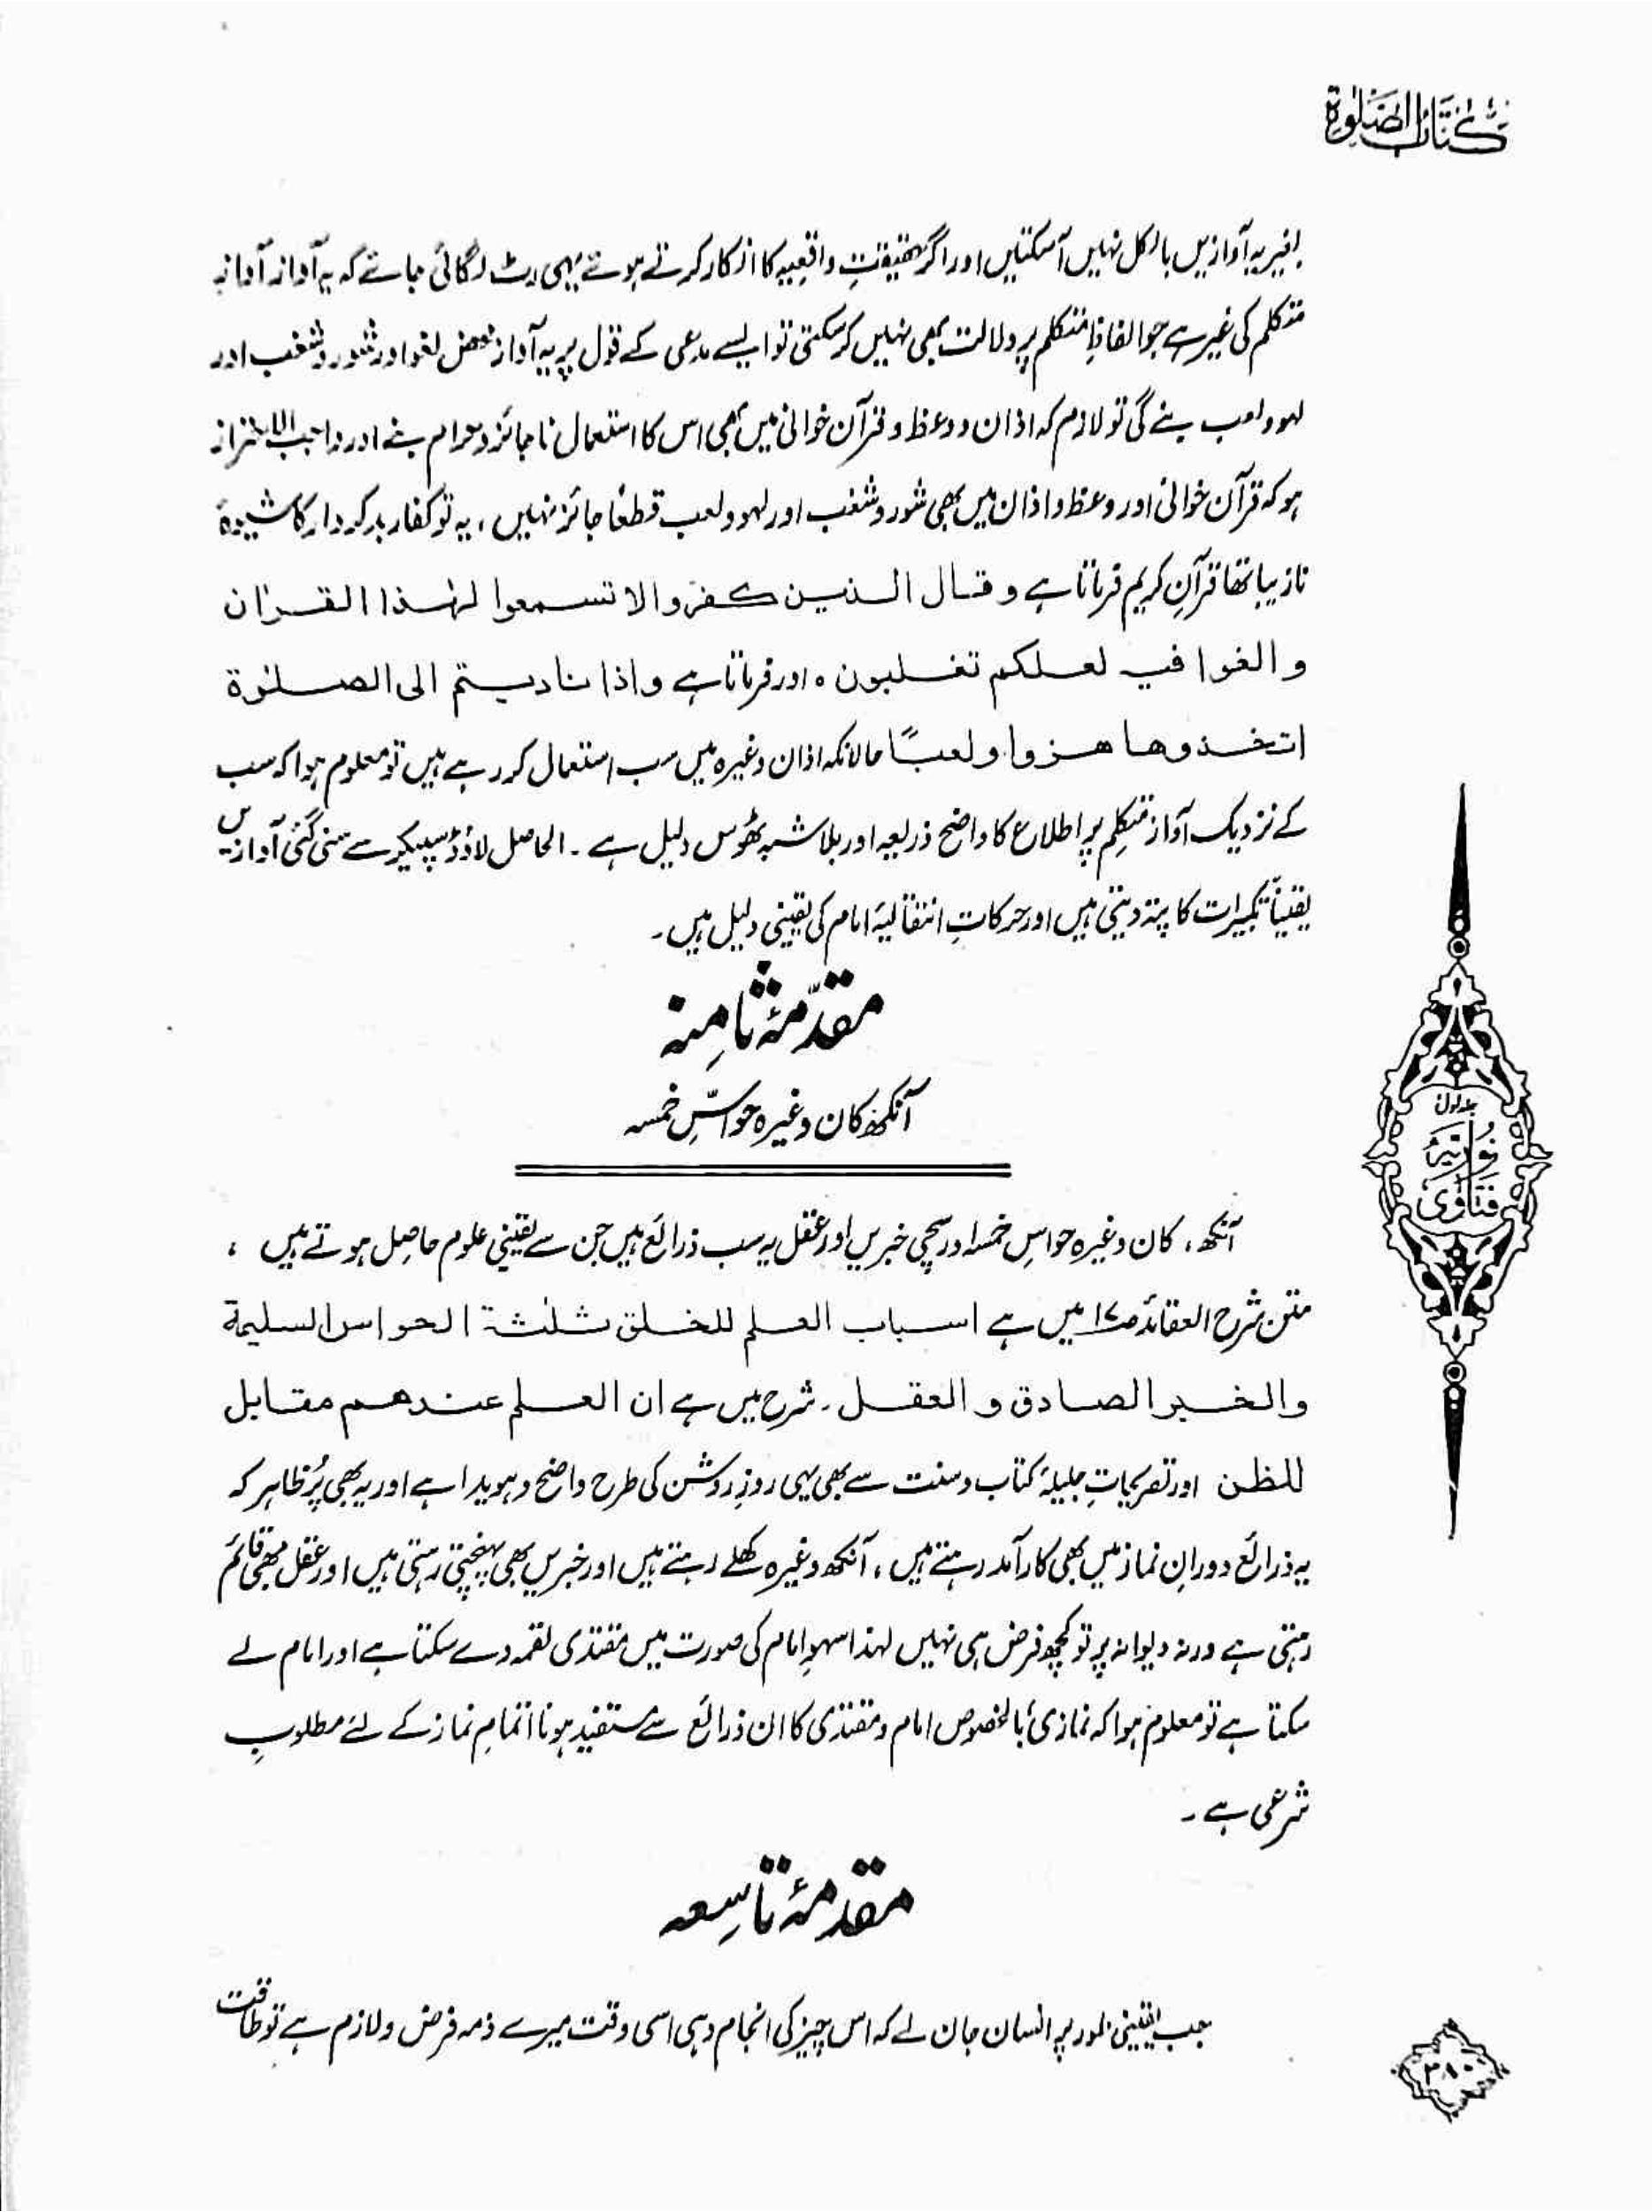 كتاب الصلوة
بغیر یہ آوازیں بالکل نہیں آسکتیں اور اگر حقیقتِ واقعیہ کا انکار کرتے ہوئے یہی رٹ لگائی جائے کہ یہ آواز آوازِ
متکلم کی غیر ہے جو الفاظِ متکلم پر دلالت بھی نہیں کرسکتی تو ایسے مدعی کے قول پر یہ آواز محض لغو اور شور و شغب اور
لہو و لعب بنے گی تو لازم کہ اذان و وعظ و قرآن خوانی میں بھی اس کا استعمال ناجائز و حرام بنے اور واجب الاحتراز
ہو کہ قرآن خوانی اور وعظ و اذان میں بھی شور و شغب اور لہو و لعب قطعًا جائز نہیں، یہ تو کفار بدکردار کا شیوۂ
نازیبا تھا قرآنِ کریم فرماتا ہے و قال الذین کفروا لا تسمعوا لہٰذا القراٰن
و الغوا فیہ لعلکم تغلبون ہ اور فرماتا ہے و اذا نادیتم الی الصلوٰۃ
اتخذوھا ھزوا و لعبًا حالانکہ اذان وغیرہ میں سب استعمال کر رہے ہیں تو معلوم ہوا کہ سب
کے نزدیک آواز متکلِم پر اطلاع کا واضح ذریعہ اور بلاشبہ ٹھوس دلیل ہے ۔ الحاصل لاؤڈ سپیکر سے سنی گئی آوازیں
یقیناً تکبیرات کا پتہ دیتی ہیں اور حرکاتِ انتقالیۂ امام کی یقینی دلیل ہیں ۔
مقدّمۂ ثامِنہ
آنکھ کان وغیرہ حواسِّ خمسہ
آنکھ، کان وغیرہ حواسِ خمسہ اور سچی خبریں اور عقل یہ سب ذرائع ہیں جن سے یقینی علوم حاصِل ہوتے ہیں ،
متن شرح العقائد ص١٧ میں ہے اسباب العلم للخلق ثلٰثۃ الحواس السلیمۃ
والخبر الصادق و العقل ۔ شرح میں ہے ان العلم عندھم مقابل
للظن اور تصریحاتِ جلیلۂ کتاب و سنت سے بھی یہی روزِ روشن کی طرح واضح و ہویدا ہے اور یہ بھی پُر ظاہر کہ
یہ ذرائع دورانِ نماز میں بھی کارآمد رہتے ہیں ، آنکھ وغیرہ کھلے رہتے ہیں اور خبریں بھی پہنچتی رہتی ہیں اور عقل بھی قائم
رہتی ہے ورنہ دیوانہ پر تو کچھ فرض ہی نہیں لہذا سہوِ امام کی صورت میں مقتدی لقمہ دے سکتا ہے اور امام لے
سکتا ہے تو معلوم ہوا کہ نمازی بالخصوص امام و مقتدی کا ان ذرائع سے مستفید ہونا اتمامِ نماز کے لئے مطلوبِ
شرعی ہے ۔
جلد اول
فتاوٰی نوریّہ
مقدمۂ تاسِعہ
جب یقینی طور پر انسان جان لے کہ اس چیز کی انجام دہی اسی وقت میرے ذمہ فرض و لازم ہے تو طاقت
٣٨٠